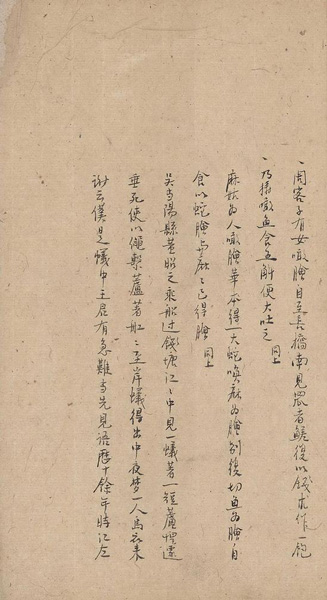 周客子有女噉膾自至長橋南見罛者鯖復以錢求作一飽
乃搏噉魚食五斛便大吐之 同上
麻叔為人噉膾華本得一大蛇喚麻為膾別復切魚為膾自
食以蛇膾與麻々已得膾 同上
吳當陽縣董昭之乘船過錢塘江々中見一蟻著一短蘆惶遽
垂死使以繩繫蘆著船々至岸蟻得出中夜夢一人烏衣來
謝云僕是蟻中主君有急難當先見語歷十餘年時江左